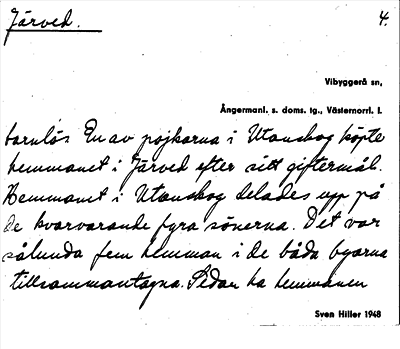 Järved.
4.
Vibyggerå sn,
Ångermanl. s. doms. tg., Västernorrl. l.
barnlös. En av pojkarna i Utanskog köpte
hemmanet i Järved efter sitt giftermål.
Hemmanet i Utanskog delades upp på
de kvarvarande fyra sönerna. Det var
sålunda fem hemman i de båda byarna
tillsammantagna. Sedan ha hemmanen
Sven Hiller 1948